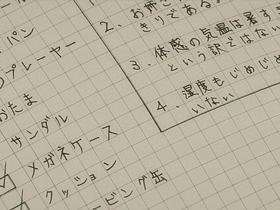 パン
プレーヤー
おたま
サンダル
メガネケース
クッション
ービング缶
2. お
きりである
3. 体感の気温は暑す
という訳ではない
4. 湿度もじめじめ
いない